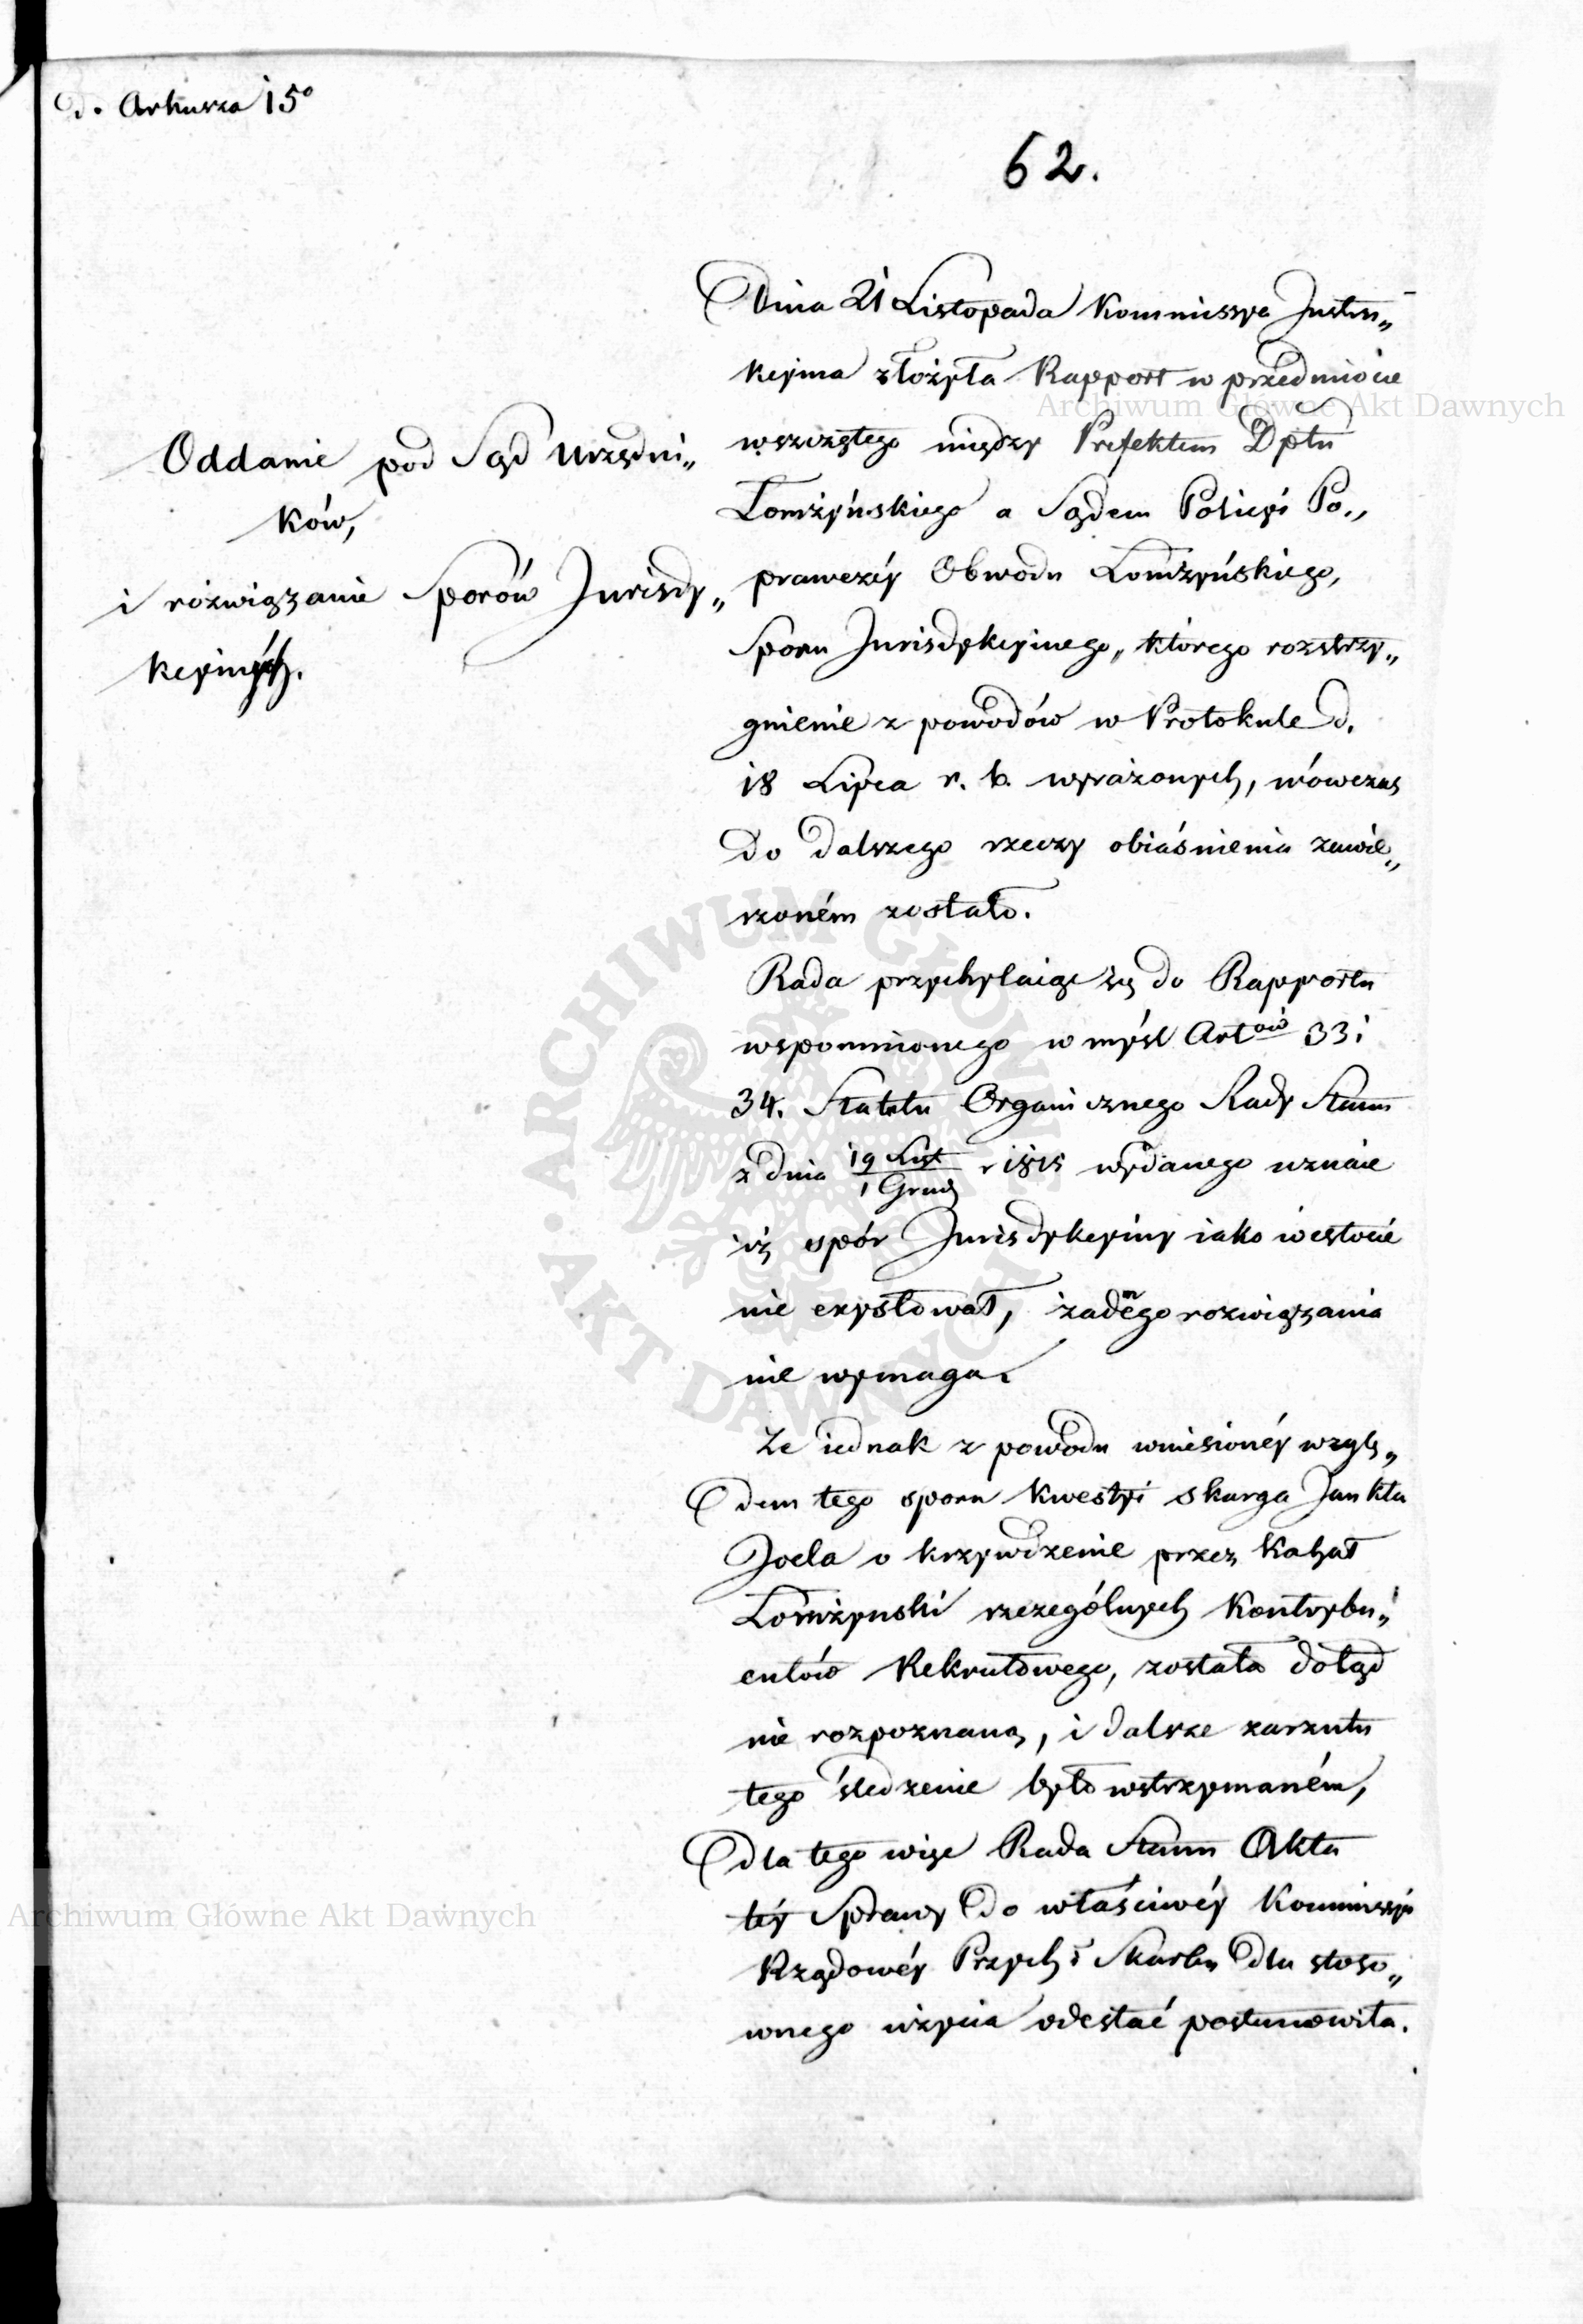 d. Arkusza 15°
62.
Oddanie pod Sąd Urzędni„
ków,
i rozwiązanie Sporów Jurisdy„
kcyinych.
Dnia 21 Listopada Kommissya Instru„
kcyina złożyła Rapport w przedmiocie
wszczętego między Prefektem Dptu
Łomżyńskiego a Sądem Policyi Po„
prawczéy Obwodu Łomżyńskiego,
Sporu Jurisdykcyinego, którego rozstrzy„
gnienie z powodów w Protokule d.
18 Lipca r. b. wyrażonych, wówczas
do dalszego rzeczy obiaśnienia zawie„
szoném zostało.
Rada przychylaiąc się do Rapportu
wspomnionego w myśl Artów 33 i
34. Statutu Organicznego Rady Stanu
z dnia 19 List / 1 Grud r 1815 wydanego uznaie
iż spór Jurisdykcyiny iako w istocie
nie exystował, żadnego rozwiązania
nie wymaga.
Że iednak z powodu wniesionéy wzglę„
dem tego sporu kwestyi skarga Jankla
Joela o krzywdzenie przez Kahał
Łomżynski szczególnych Kontrybu„
entów Rekrutowego, została dotąd
nie rozpoznaną, i dalsze zarzutu
tego śledzenie było wstrzymaném,
dla tego więc Rada Stanu Akta
téy Sprawy do właściwéy Kommissyi
Rządowéy Przych i Skarbu dla stoso„
wnego użycia odesłać postanowiła.
Archiwum Główne Akt Dawnych
Archiwum Główne Akt Dawnych
ARCHIWUM GŁÓWNE AKT DAWNYCH